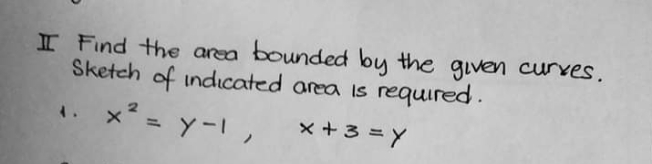 II Find the area bounded by the given curves.
Sketch of indicated area is required.
1. x² = y-1, x+3 = y